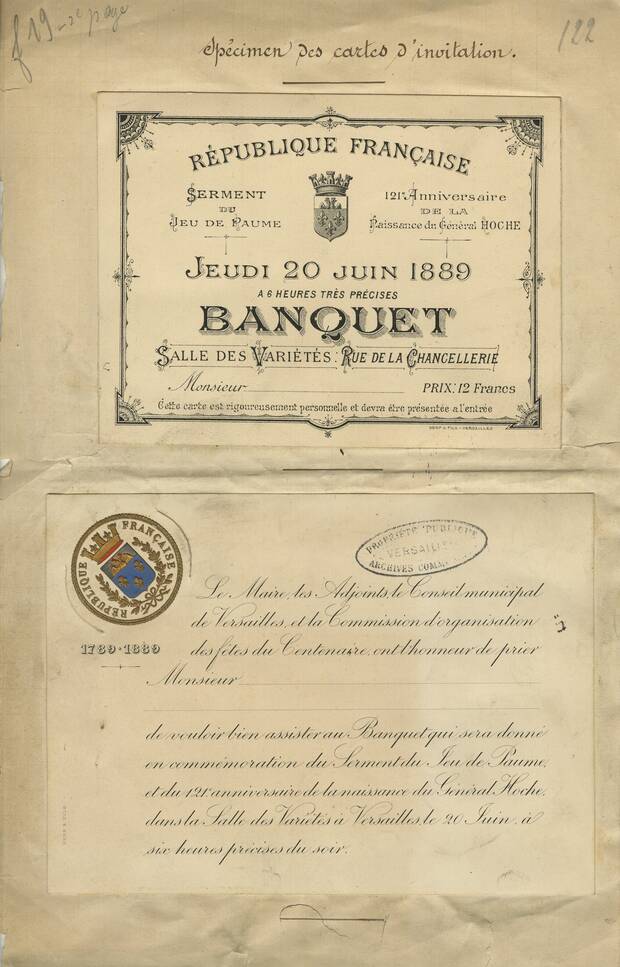 f 19 - 2e page
122
Spécimen des cartes d'invitation.
RÉPUBLIQUE FRANÇAISE
SERMENT
DU
JEU DE PAUME
121e Anniversaire
DE LA
Naissance du Général HOCHE
JEUDI 20 JUIN 1889
A 6 HEURES TRÈS PRÉCISES
BANQUET
SALLE DES VARIÉTÉS: RUE DE LA CHANCELLERIE
Monsieur
PRIX: 12 Francs
Cette carte est rigoureusement personnelle et devra être présentée a l'entrée
CERF & FILS - VERSAILLES
RÉPUBLIQUE FRANÇAISE
1789-1889
PROPRIÉTÉ PUBLIQUE
VERSAILLES
ARCHIVES COMM
Le Maire, les Adjoints, le Conseil municipal
de Versailles, et la Commission d'organisation
des fêtes du Centenaire, ont l'honneur de prier
Monsieur
de vouloir bien assister au Banquet qui sera donné
en commémoration du Serment du Jeu de Paume,
et du 121e anniversaire de la naissance du Général Hoche,
dans la Salle des Variétés à Versailles, le 20 Juin, à
six heures précises du soir.
CERF & FILS